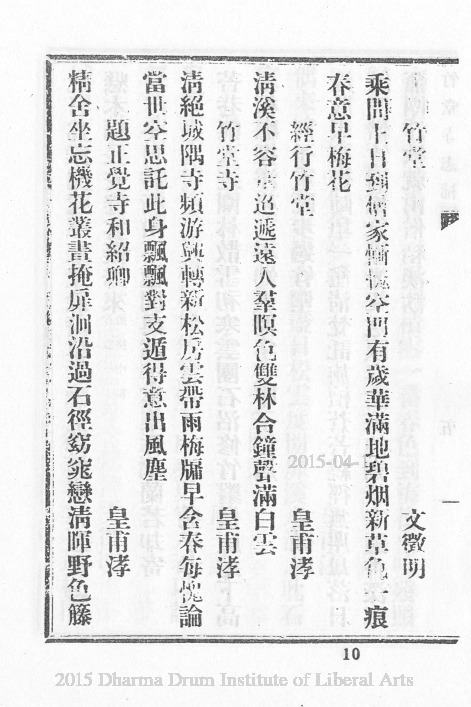 竹堂 文徵明
乘閒十日到僧家慚愧空門有歲華滿地碧烟新草色一痕
春意早梅花
經行竹堂 皇甫涍
淸溪不容 迢遞遠人羣暝色雙林合鐘聲滿白雲
竹堂寺 皇甫涍
淸絕城隅寺頻游興轉新松房雲帶雨梅牖早含春每愧論
當世空思託此身飄飄對支遁得意出風塵
題正覺寺和紹卿 皇甫涍
精舍坐忘機花叢晝掩扉洄沿過石徑窈窕戀淸暉野色籐
10
2015-04-1
2015 Dharma Drum Institute of Liberal Arts